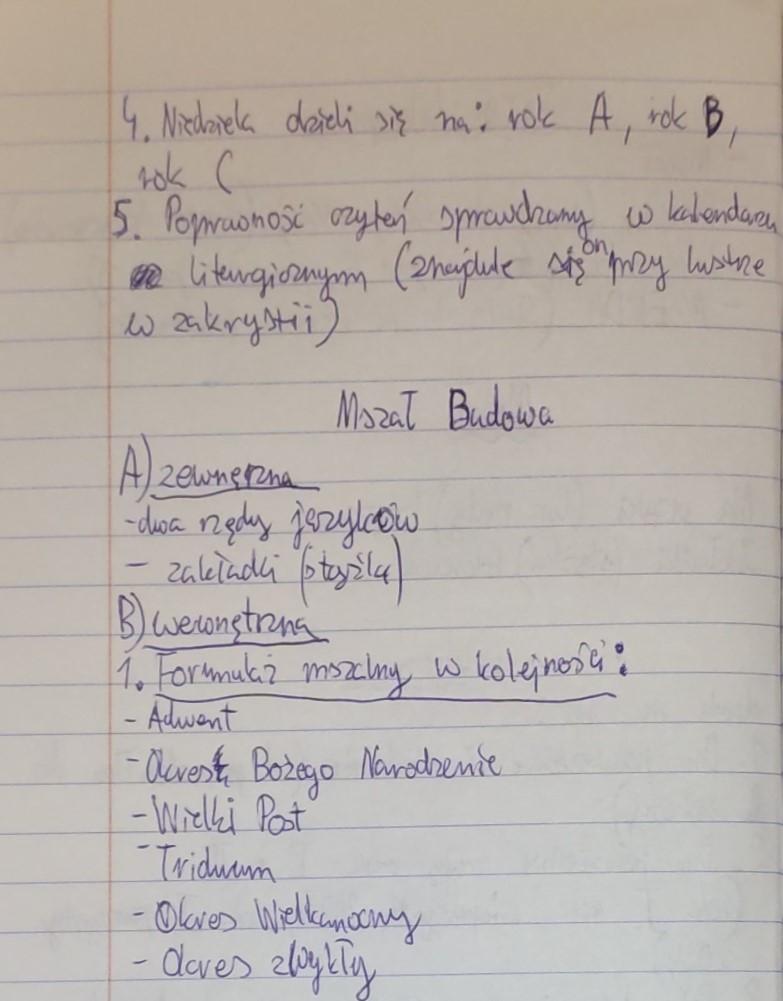 4. Niedziela dzieli się na: rok A, rok B,
rok C
5. Poprawność czytań sprawdzamy w kalendarzu
liturgicznym (znajduje się on przy lustrze
w zakrystii)
Mszał Budowa
A) zewnęrzna
- dwa rzędy języków
- zakładki (stężka)
B) wewnętrzna
1. Formularz mszalny w kolejności:
- Adwent
- Okres Bożego Narodzenie
- Wielki Post
- Triduum
- Okres Wielkanocny
- Okres zwykły